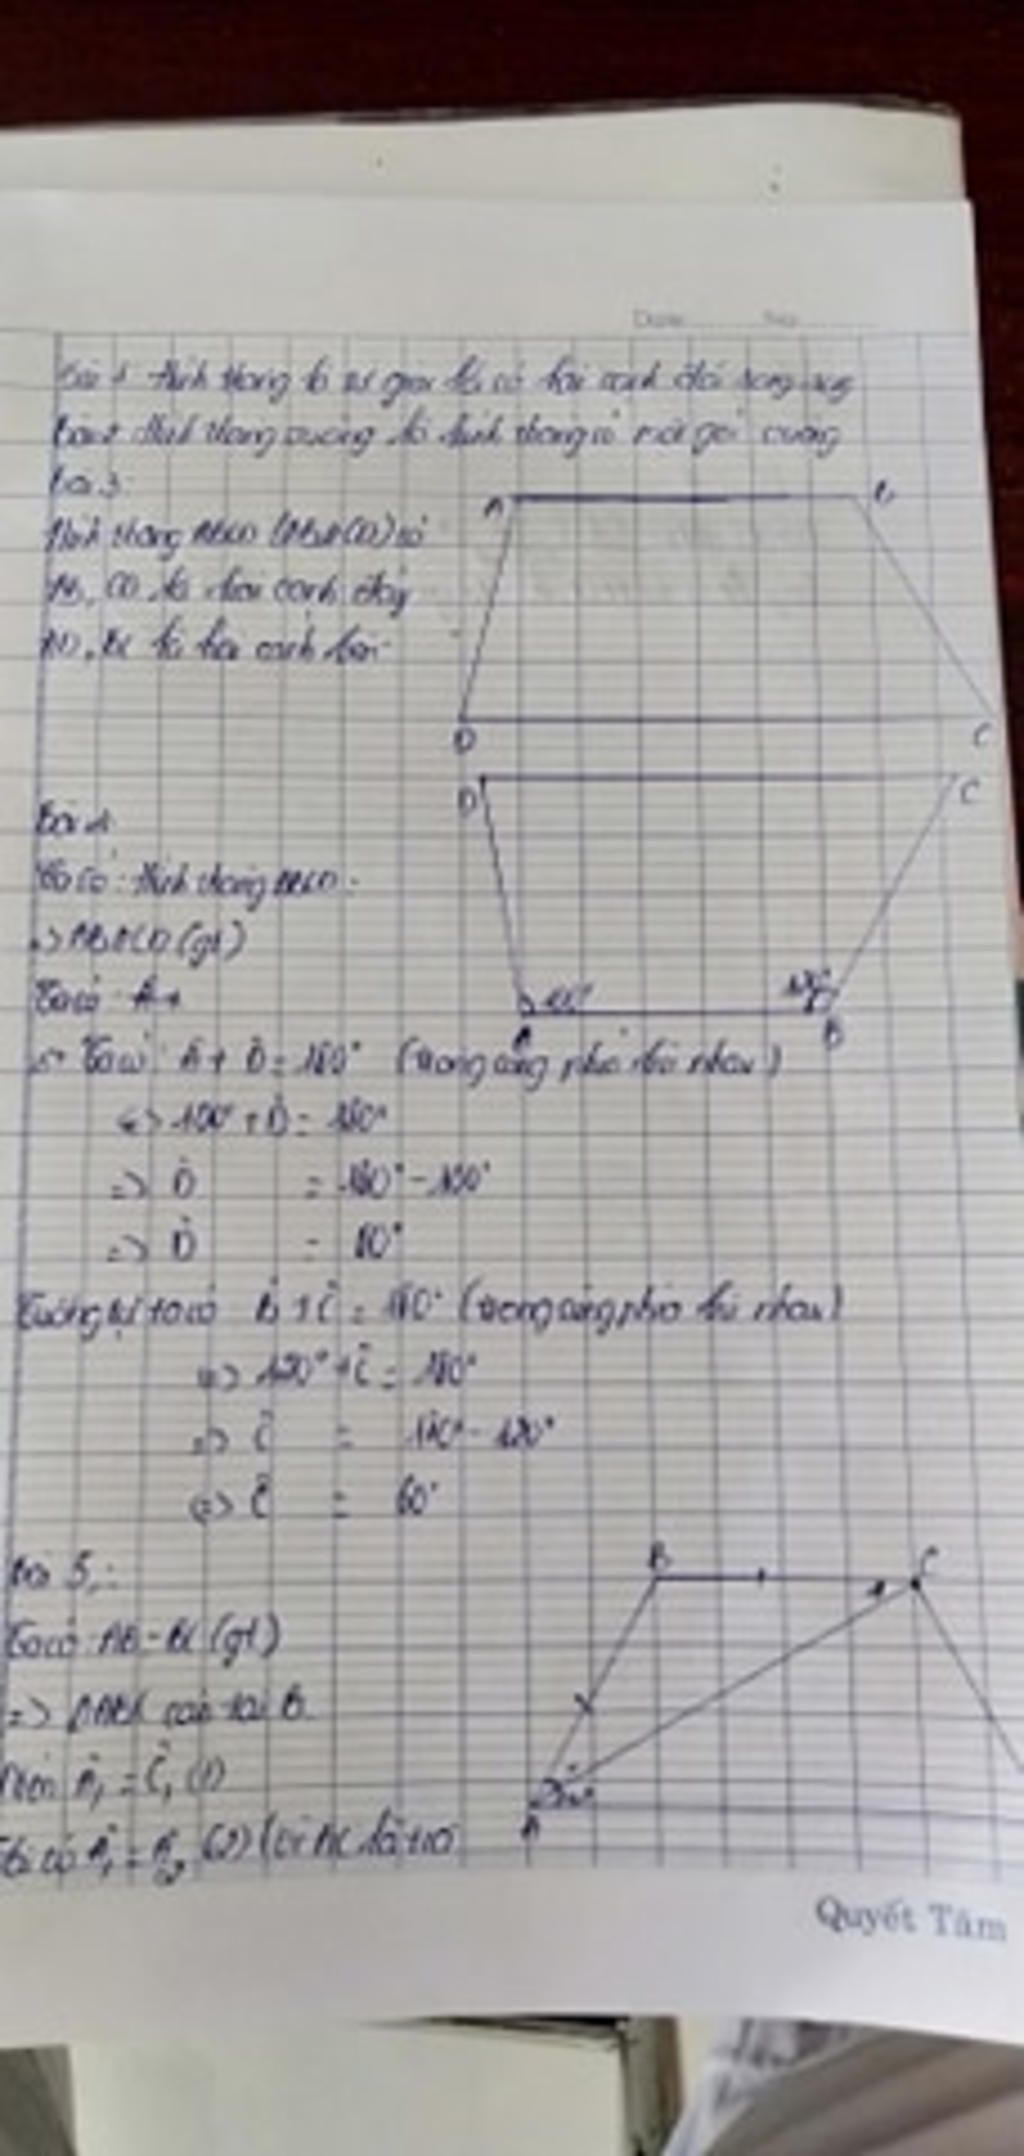 Date No
Bài 1 Hình thang là tứ giác có hai cạnh đối song song
Bài 2 Hình thang vuông là hình thang có một góc vuông
Bài 3
Hình thang ABCD (AB//CD) có
AB, CD là hai cạnh đáy
AD, BC là hai cạnh bên
A B
D C
D C
Bài 4
Ta có: Hình thang ABCD
=> AB//CD (gt)
Ta có A+
A B
Ta có: A + D = 180° (trong cùng phía bù nhau)
<=> 100° + D = 180°
=> D = 180° - 100°
=> D = 80°
Tương tự ta có B + C = 180° (trong cùng phía bù nhau)
=> 120° + C = 180°
=> C = 180° - 120°
=> C = 60°
Bài 5:
B C
Ta có AB = BC (gt)
=> ΔABC cân tại B
Nên A₁ = C₁ (1)
Ta có A₁ = A₂ (2) (vì AC là
A
Quyết Tâm